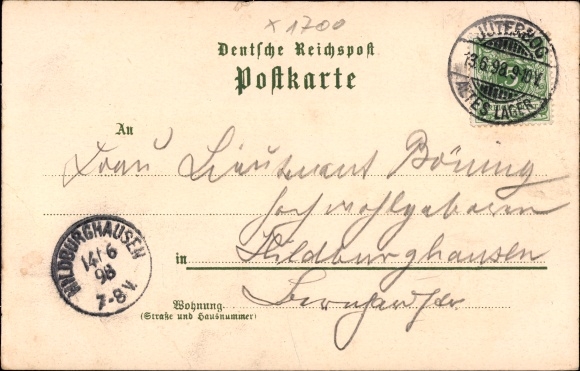 x 1700
Deutsche Reichspost
Postkarte
JÜTERBOG
13.6.98. 9-10 V.
ALTES LAGER
5
An
Frau Lieutenant Böning
hochwohlgeboren
in Hildburghausen
HILDBURGHAUSEN
14/6
98
7-8 V.
Wohnung
(Straße und Hausnummer)